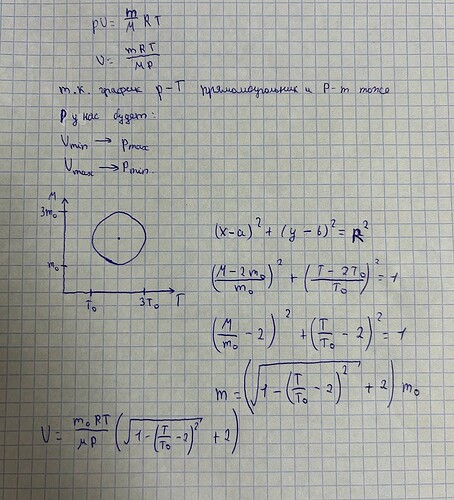 pV = m/μ RT
V = mRT/μP
т.к. график p-T прямоугольник и P-m тоже
P у нас будет:
Vmin → Pmax
Vmax → Pmin.
M
3m₀
m₀
T₀ 3T₀ T
(x-a)² + (y-b)² = R²
((M-2m₀)/m₀)² + ((T-2T₀)/T₀)² = 1
(M/m₀ - 2)² + (T/T₀ - 2)² = 1
m = (√(1-(T/T₀ - 2)²) + 2) m₀
V = m₀RT/μP (√(1-(T/T₀ - 2)²) + 2)